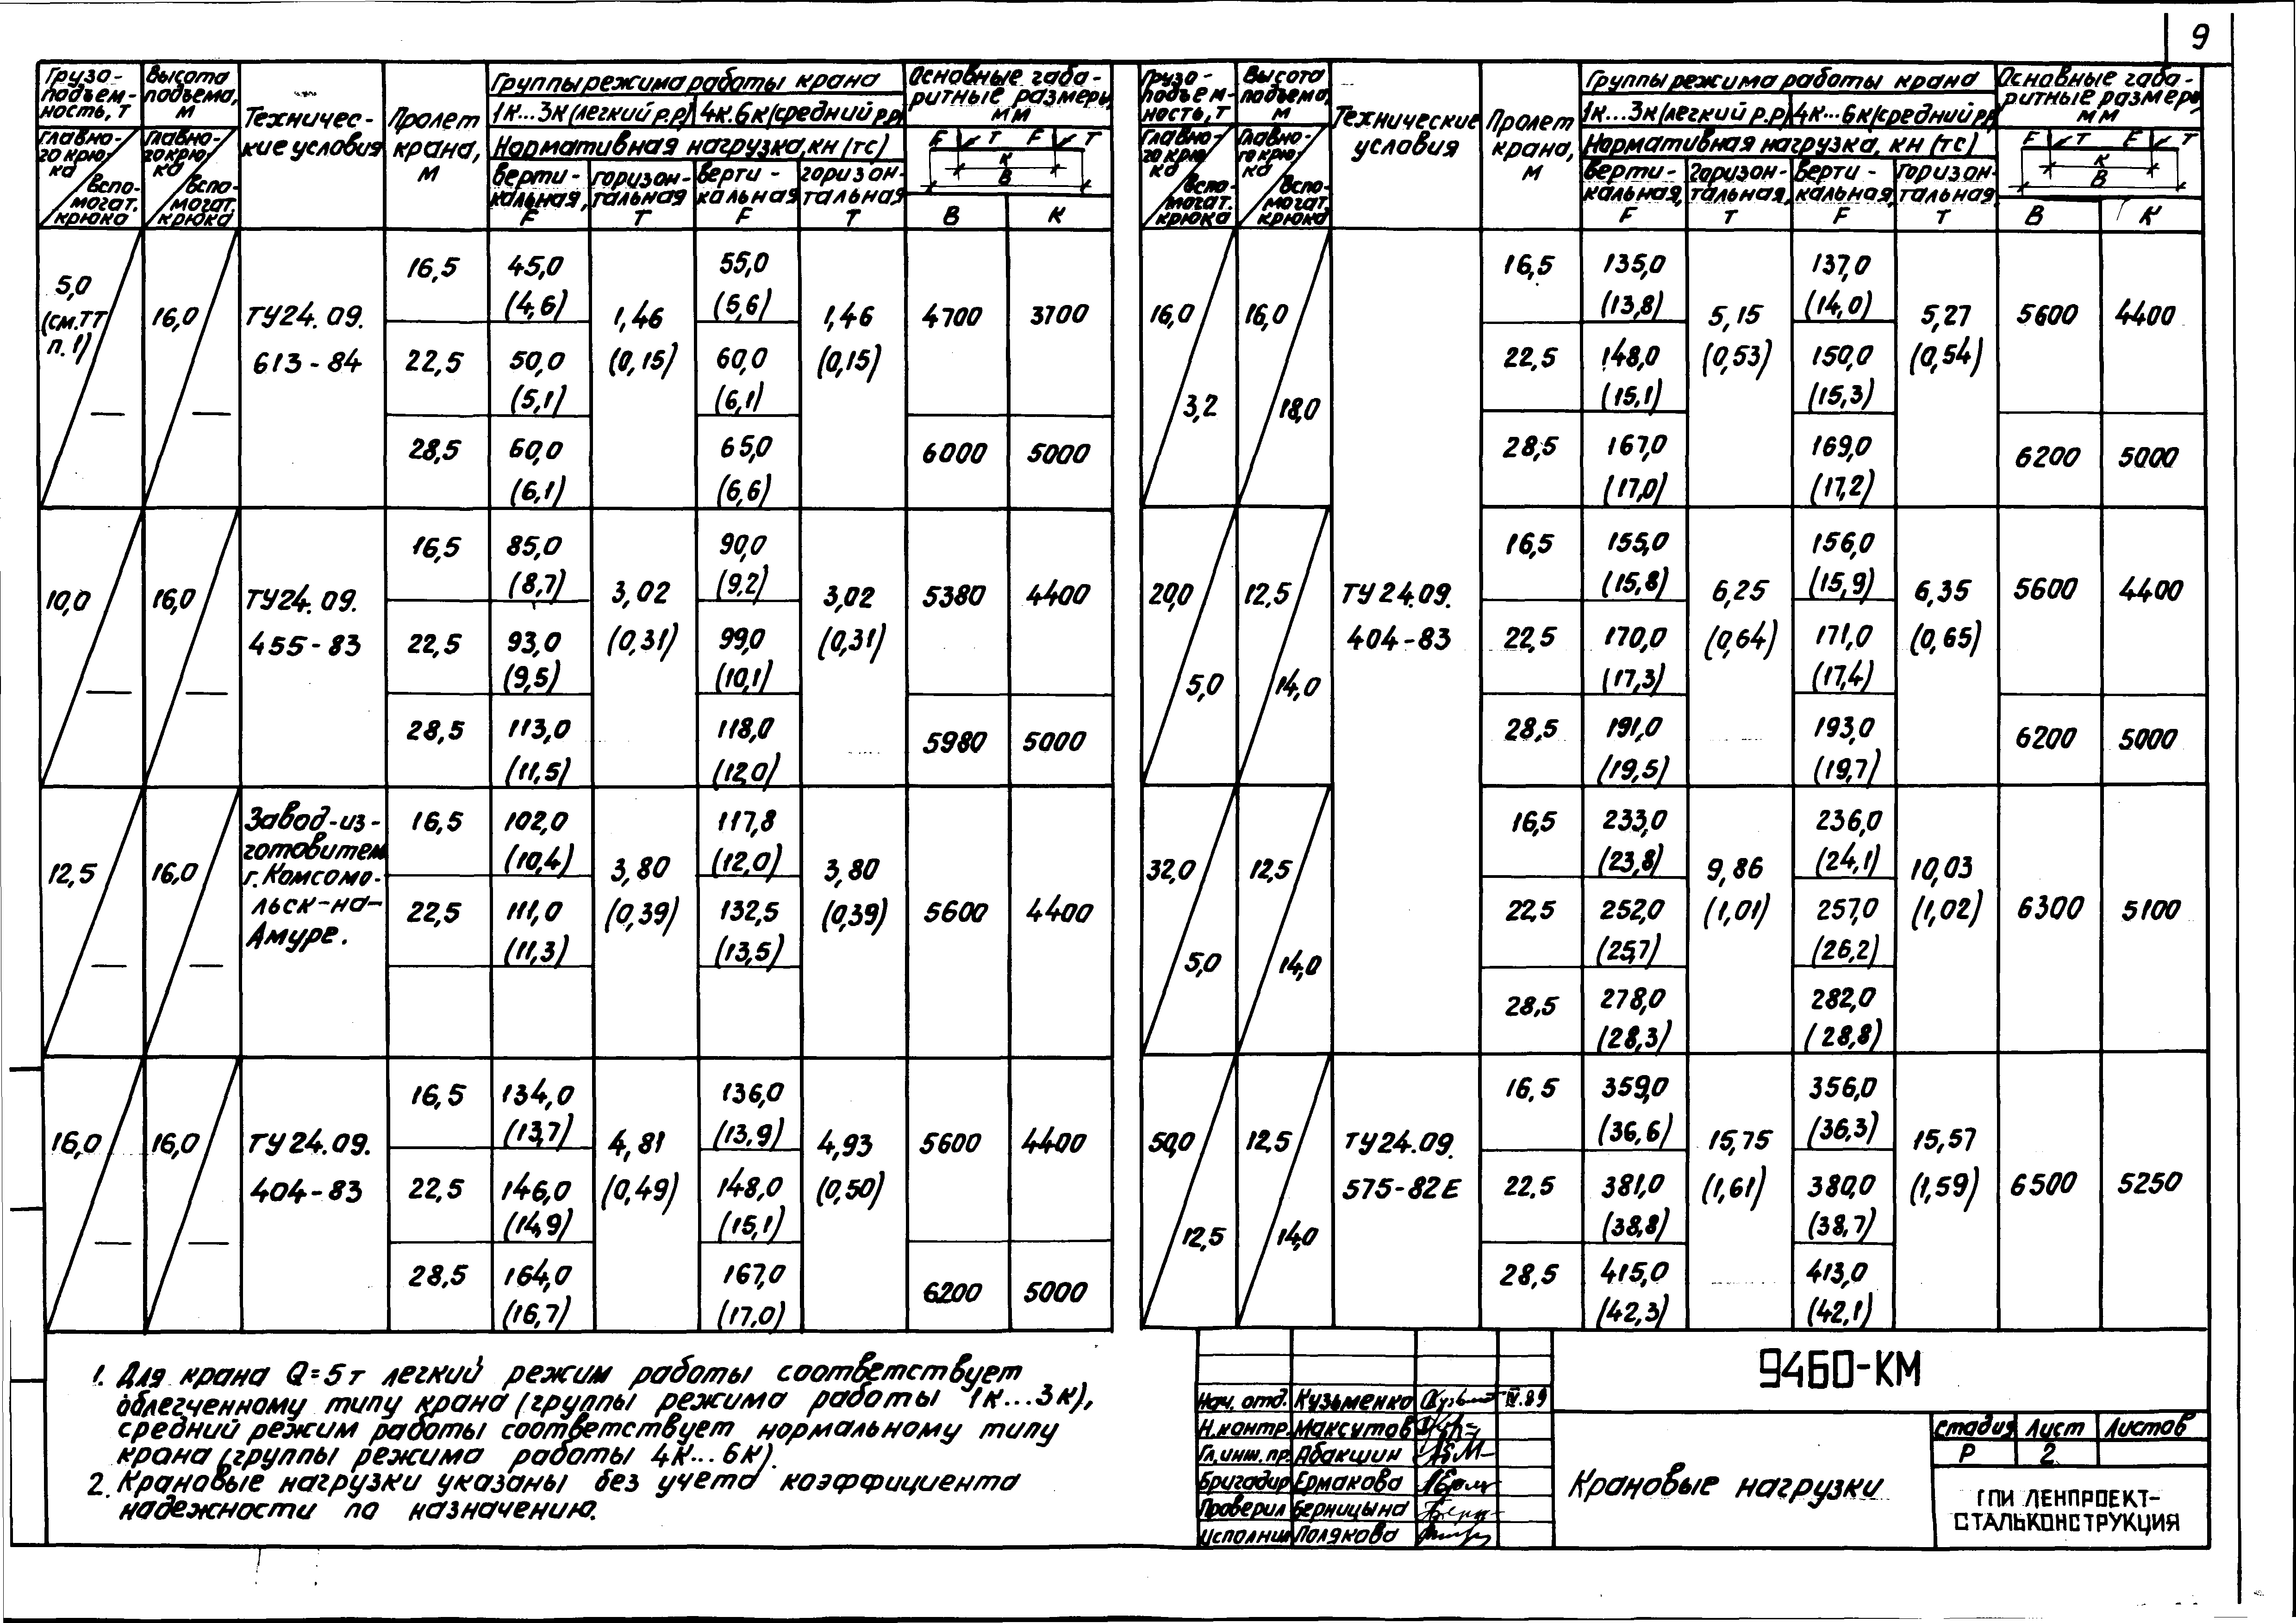 9
Грузо-
подъем-
ность, т
Высота
подъема,
м
Техничес-
кие условия
Пролет
крана,
м
Группы режима работы крана
Основные габа-
ритные размеры,
мм
1к...3к (легкий р.р)
4к.6к (средний р.р)
Нормативная нагрузка, кн (тс)
главно-
го крю-
ка
вспо-
могат.
крюка
главно-
го крю-
ка
вспо-
могат.
крюка
верти-
кальная,
F
горизон-
тальная
Т
верти-
кальная
F
горизон-
тальная
Т
F Т F Т
К
В
В К
5,0
(см.ТТ
п.1)
—
16,0
—
ТУ24.09.
613-84
16,5 45,0 55,0
(4,6) (5,6)
1,46 1,46 4700 3700
22,5 50,0 (0,15) 60,0 (0,15)
(5,1) (6,1)
28,5 60,0 65,0 6000 5000
(6,1) (6,6)
10,0
—
16,0
—
ТУ24.09.
455-83
16,5 85,0 90,0
(8,7) (9,2)
3,02 3,02 5380 4400
22,5 93,0 (0,31) 99,0 (0,31)
(9,5) (10,1)
28,5 113,0 118,0 5980 5000
(11,5) (12,0)
12,5
—
16,0
—
Завод-из-
готовитель
г. Комсомо-
льск-на-
Амуре.
16,5 102,0 117,8
(10,4) (12,0)
3,80 3,80
22,5 111,0 (0,39) 132,5 (0,39) 5600 4400
(11,3) (13,5)
16,0
—
16,0
—
ТУ24.09.
404-83
16,5 134,0 136,0
(13,7) (13,9)
4,81 4,93 5600 4400
22,5 146,0 (0,49) 148,0 (0,50)
(14,9) (15,1)
28,5 164,0 167,0 6200 5000
(16,7) (17,0)
Грузо-
подъем-
ность, т
Высота
подъема,
м
Технические
условия
Пролет
крана,
м
Группы режима работы крана
Основные габа-
ритные размеры
мм
1к...3к (легкий р.р)
4к...6к (средний р.р)
Нормативная нагрузка, кн (тс)
главно-
го крю-
ка
вспо-
могат.
крюка
главно-
го крю-
ка
вспо-
могат.
крюка
верти-
кальная,
F
горизон-
тальная,
Т
верти-
кальная,
F
горизон-
тальная
Т
F Т F Т
К
В
В К
16,0
3,2
16,0
18,0
16,5 135,0 137,0
(13,8) (14,0)
5,15 5,27 5600 4400
22,5 148,0 (0,53) 150,0 (0,54)
(15,1) (15,3)
28,5 167,0 169,0 6200 5000
(17,0) (17,2)
20,0
5,0
12,5
14,0
ТУ24.09.
404-83
16,5 155,0 156,0
(15,8) (15,9)
6,25 6,35 5600 4400
22,5 170,0 (0,64) 171,0 (0,65)
(17,3) (17,4)
28,5 191,0 193,0 6200 5000
(19,5) (19,7)
32,0
5,0
12,5
14,0
16,5 233,0 236,0
(23,8) (24,1)
9,86 10,03
22,5 252,0 (1,01) 257,0 (1,02) 6300 5100
(25,7) (26,2)
28,5 278,0 282,0
(28,3) (28,8)
50,0
12,5
12,5
14,0
ТУ24.09.
575-82Е
16,5 359,0 356,0
(36,6) (36,3)
15,75 15,57
22,5 381,0 (1,61) 380,0 (1,59) 6500 5250
(38,8) (38,7)
28,5 415,0 413,0
(42,3) (42,1)
1. Для крана Q=5т легкий режим работы соответствует
облегченному типу крана (группы режима работы 1к...3к),
средний режим работы соответствует нормальному типу
крана (группы режима работы 4к...6к).
2. Крановые нагрузки указаны без учета коэффициента
надежности по назначению.
Нач. отд. Кузьменко IV.89
Н.контр. Максутов
Гл.инж.пр. Абакшин
Бригадир Ермакова
Проверил Берницына
Исполнил Полякова
9460-КМ
Крановые нагрузки
Стадия Лист Листов
Р 2
ГПИ ЛЕНПРОЕКТ-
СТАЛЬКОНСТРУКЦИЯ